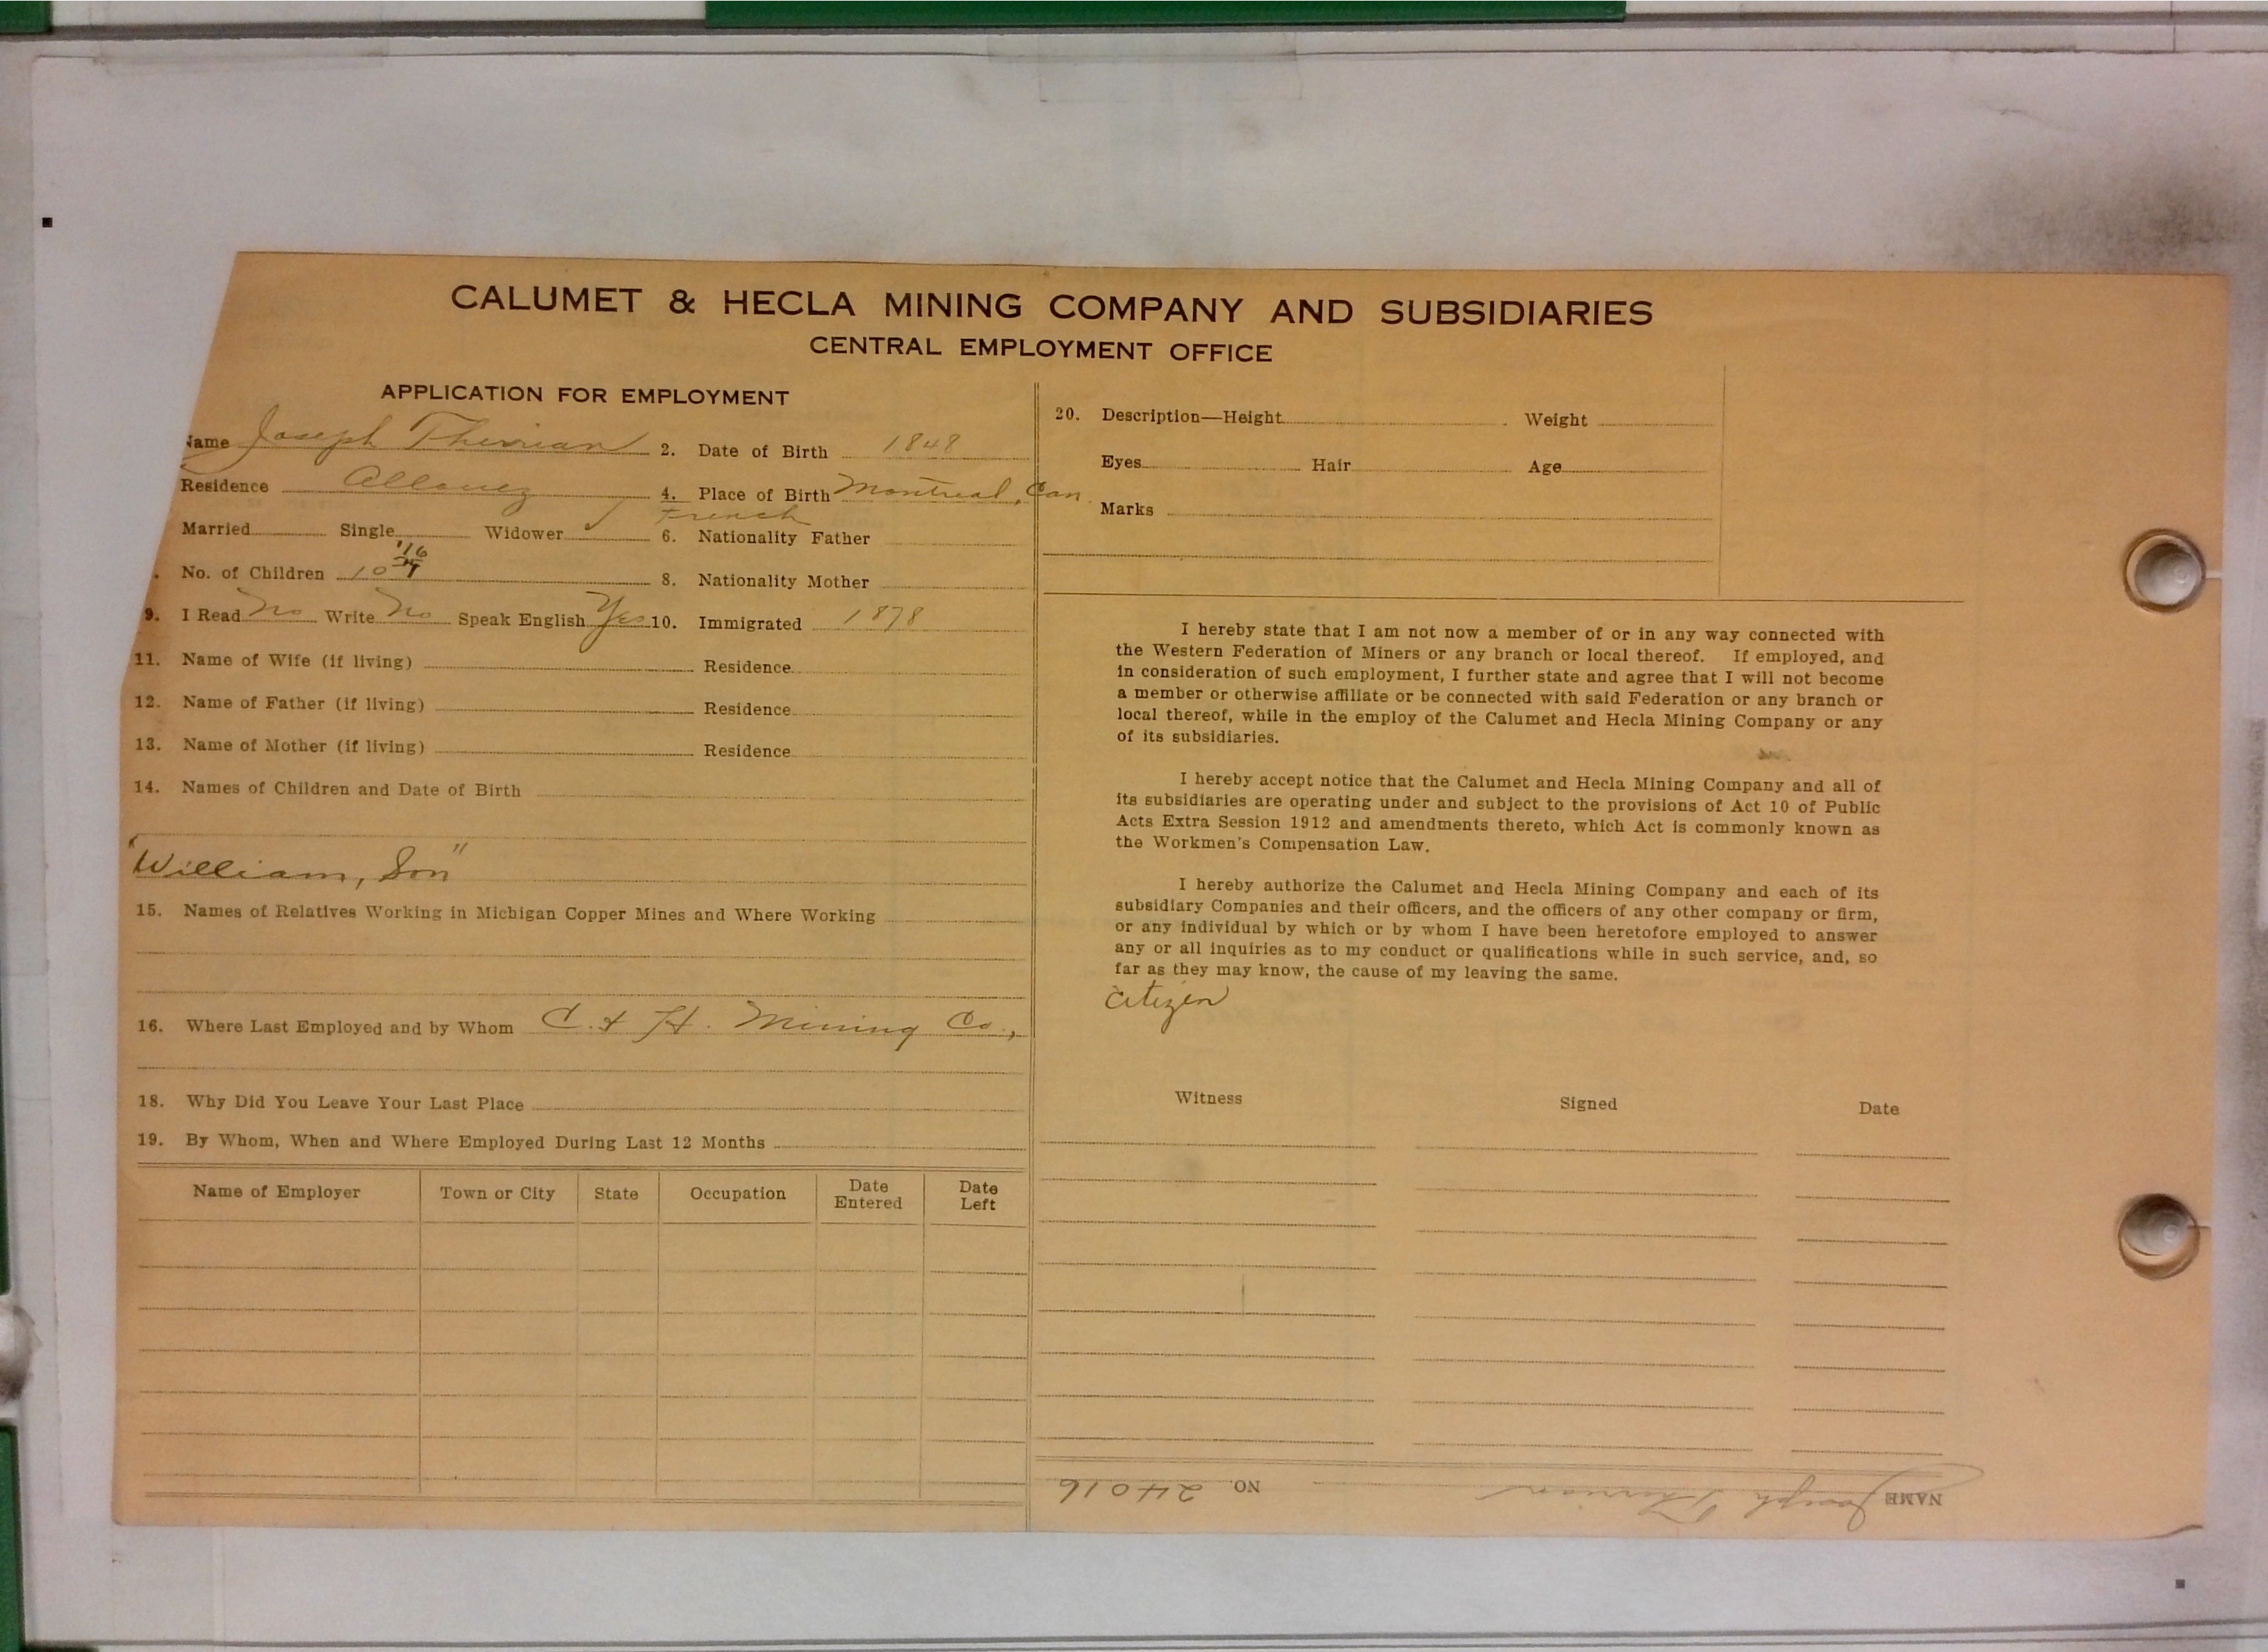 CALUMET & HECLA MINING COMPANY AND SUBSIDIARIES
CENTRAL EMPLOYMENT OFFICE
APPLICATION FOR EMPLOYMENT
Name Joseph Therrian 2. Date of Birth 1848
Residence Allouez 4. Place of Birth Montreal, Can.
Married Single Widower ✓ 6. Nationality Father French
No. of Children 10 '16
8. Nationality Mother
9. I Read No Write No Speak English Yes 10. Immigrated 1878
11. Name of Wife (if living) Residence
12. Name of Father (if living) Residence
13. Name of Mother (if living) Residence
14. Names of Children and Date of Birth
"William, Son"
15. Names of Relatives Working in Michigan Copper Mines and Where Working
16. Where Last Employed and by Whom C. & H. Mining Co.,
18. Why Did You Leave Your Last Place
19. By Whom, When and Where Employed During Last 12 Months
Name of Employer Town or City State Occupation Date Entered Date Left
20. Description—Height Weight
Eyes Hair Age
Marks
I hereby state that I am not now a member of or in any way connected with
the Western Federation of Miners or any branch or local thereof. If employed, and
in consideration of such employment, I further state and agree that I will not become
a member or otherwise affiliate or be connected with said Federation or any branch or
local thereof, while in the employ of the Calumet and Hecla Mining Company or any
of its subsidiaries.
I hereby accept notice that the Calumet and Hecla Mining Company and all of
its subsidiaries are operating under and subject to the provisions of Act 10 of Public
Acts Extra Session 1912 and amendments thereto, which Act is commonly known as
the Workmen's Compensation Law.
I hereby authorize the Calumet and Hecla Mining Company and each of its
subsidiary Companies and their officers, and the officers of any other company or firm,
or any individual by which or by whom I have been heretofore employed to answer
any or all inquiries as to my conduct or qualifications while in such service, and, so
far as they may know, the cause of my leaving the same.
Citizen
Witness Signed Date
NAME Joseph Therrian NO. 24016